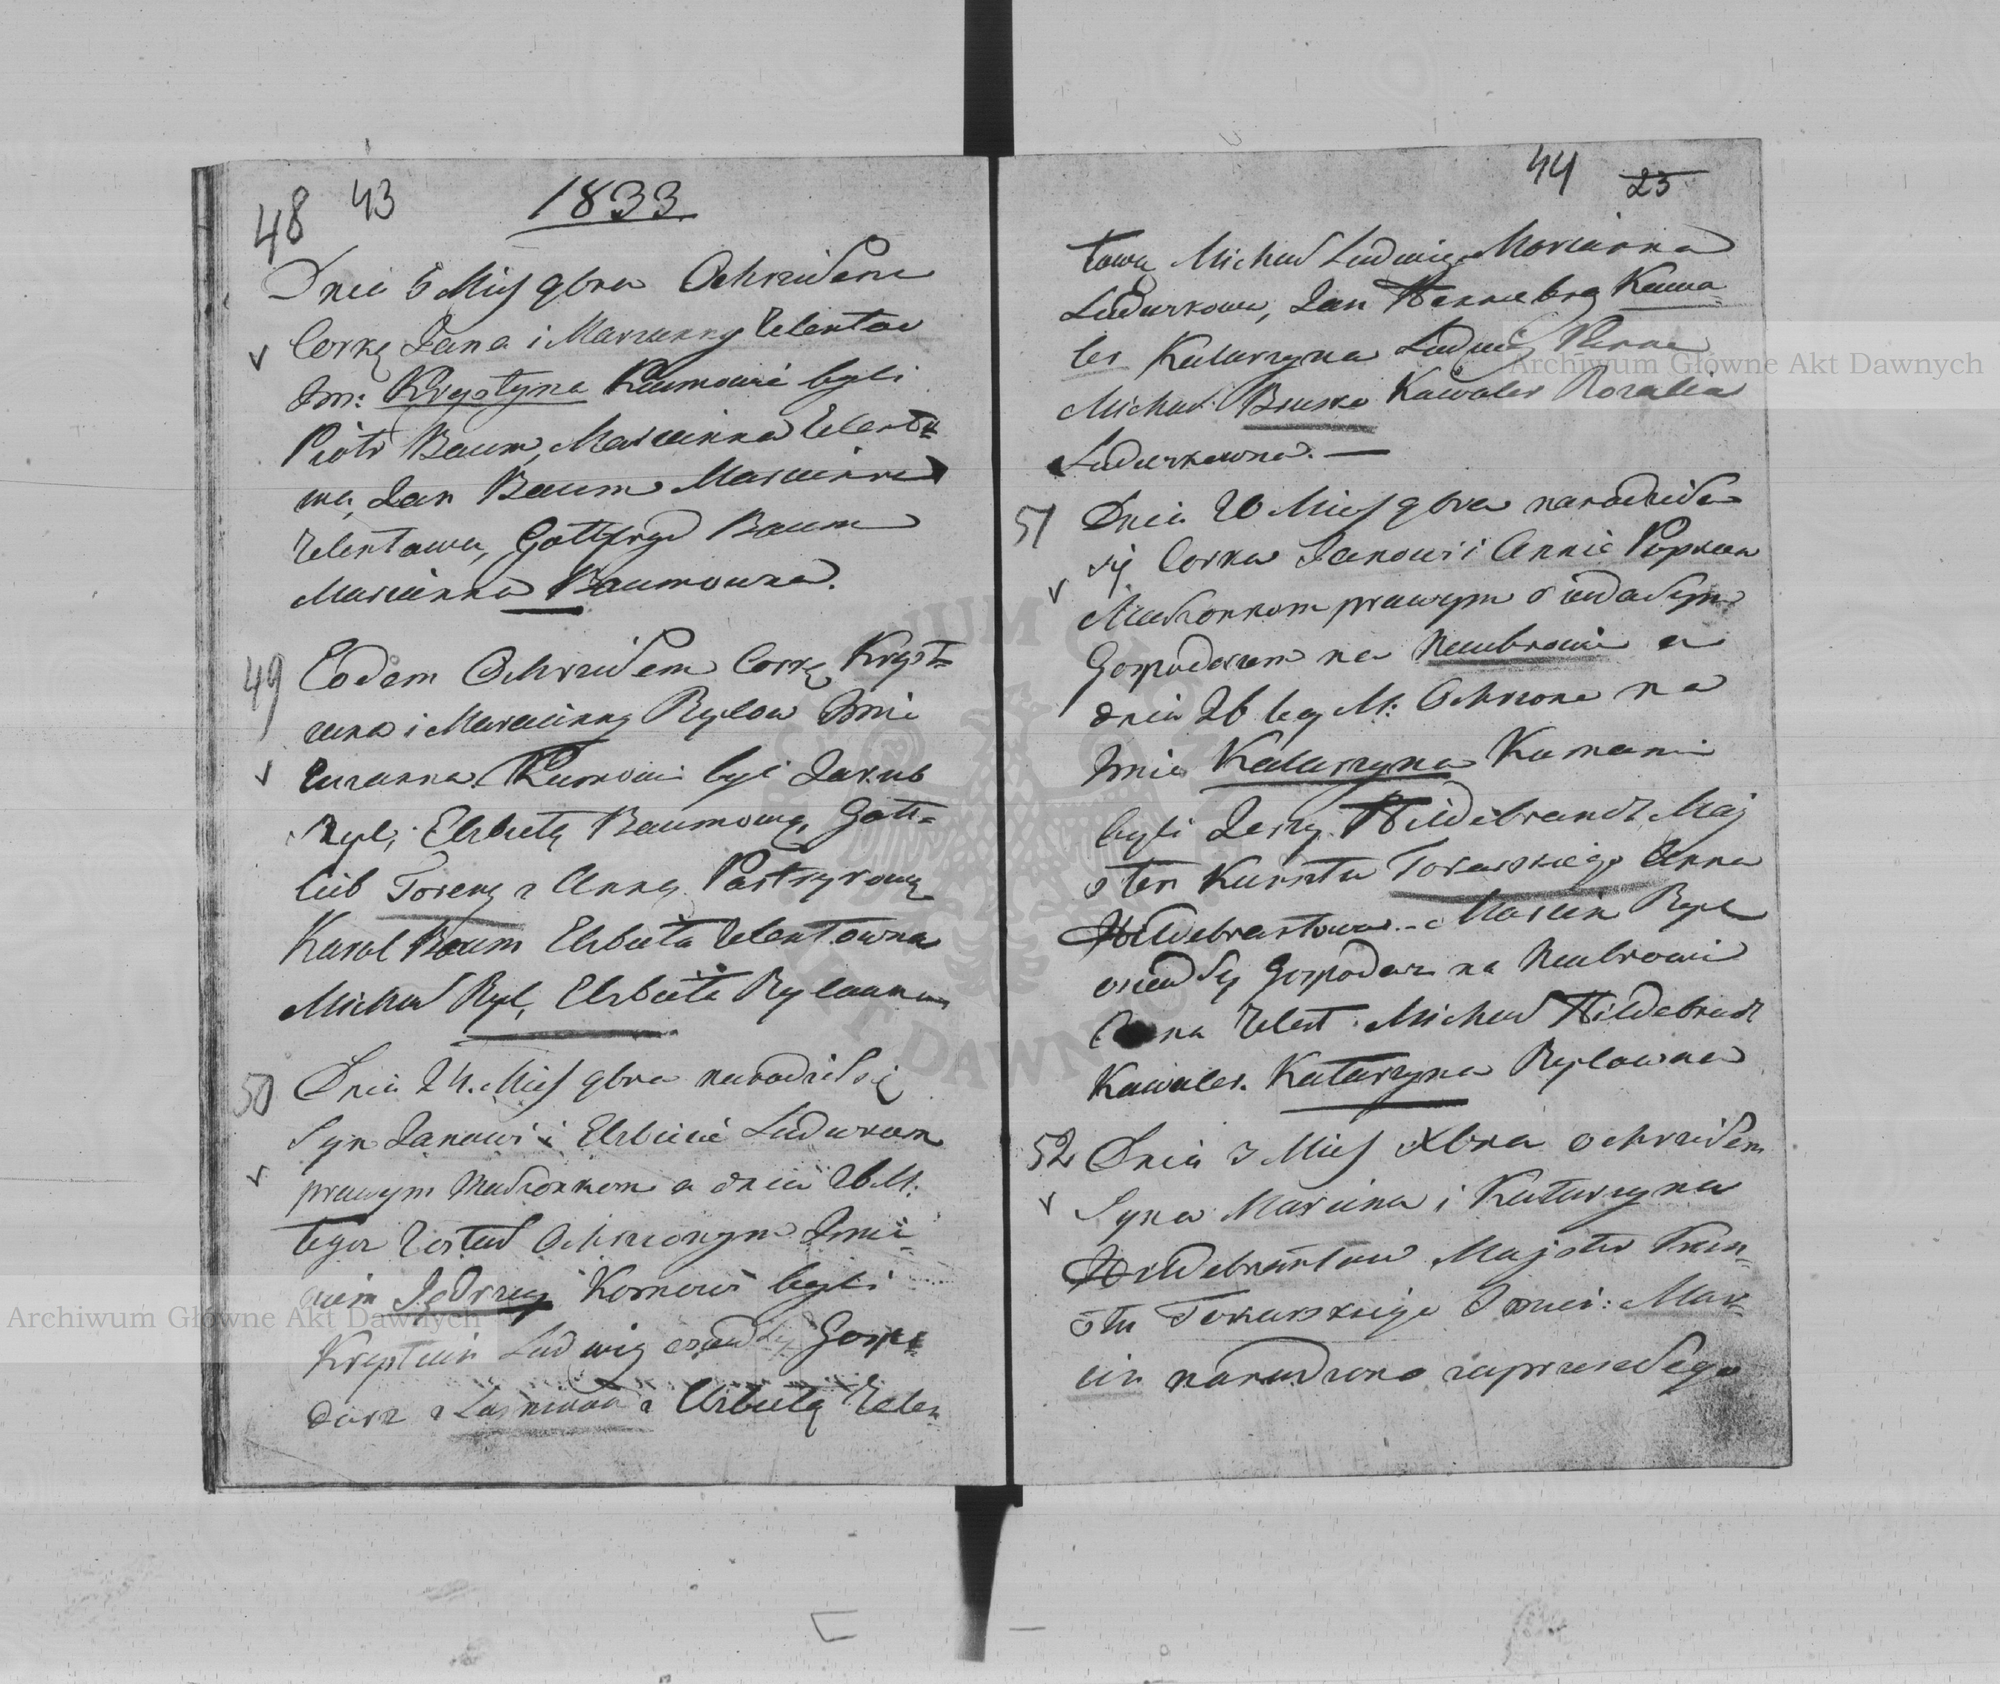 48 43 1833
Dnia 5 Mies 9bra Ochrzciłem
Corkę Jana i Maryanny Zelentow
Im: Krystyna Kumowie byli
Piotr Baum, Maryanna Zelento
wa, Jan Baum Maryanna
Zelentowa, Gottfryd Baum
Maryanna Baumowna.
49 Eodem Ochrzciłem Corkę Kryst=
iana i Maryanny Rylow Imie
Zuzanna. Kumowie byli Jakub
Ryl, Elzbietą Baumową, Gott=
lib z Anną
Karol Baum Elzbieta Zelentowna
Michał Ryl, Elzbieta Rylowna
50 Dnia 24. Mies 9bra narodził się
Syn Janowi i Elzbiecie
prawym Małżonkom a dnia 26 M.
tegoz Został Ochrzconym Imie
niem Jędrzej Komowi byli
Krystian Ludwig osiadły Gospo
darz z z Elzbietą Zelen
44 23
tową Michał Ludwig Maryanna
Jan Kawa=
ler Katarzyna Ludwig Panna
Michał Kawaler Rozalia
51 Dnia 20 Mies 9bra narodziła
się Corka Janowi i Annie
Małżonkom prawym osiadłym
Gospodarzom na Neubrowie a
dnia 26 teg M: Ochrzcona na
Imie Katarzyna Kumami
byli Jerzy Hildebrandt Maj
ster Kunsztu Tokarskiego Anna
Hildebrantowa - Marcin Ryl
osiadły Gospodarz na Neubrowie
Anna Zelent. Michał Hildebradt
Kawaler. Katarzyna Rylowna
52 Dnia 3 Mies Xbra ochrzciłem
Syna Marcina i Katarzyna
Hildebrantow Majstra Kun
sztu Tokarskiego Imie: Mar=
cin narodzone zaprzeszłego
Archiwum Główne Akt Dawnych
Archiwum Główne Akt Dawnych